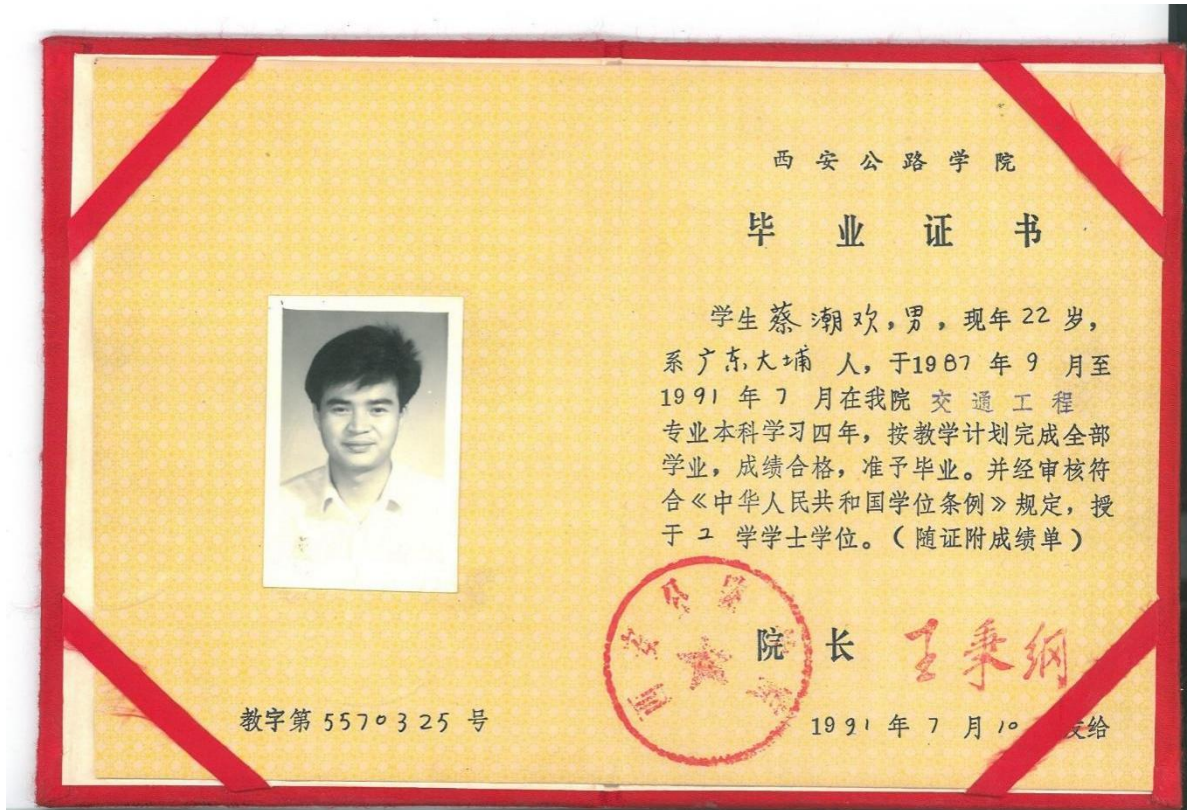 西安公路学院
毕业证书
学生蔡潮欢，男，现年22岁，
系广东大埔人，于1987年9月至
1991年7月在我院交通工程
专业本科学习四年，按教学计划完成全部
学业，成绩合格，准予毕业。并经审核符
合《中华人民共和国学位条例》规定，授
于工学学士学位。（随证附成绩单）
院长 王秉纲
1991年7月10 发给
教字第5570325号
西安公路学院